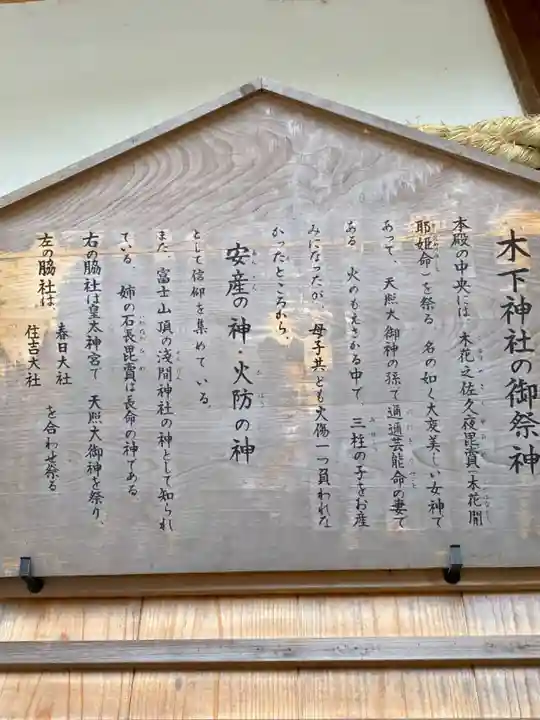 木下神社の御祭神
本殿の中央には、木花之佐久夜毘賣(木花開
耶姫命)を祭る。名の如く大変美しい女神で
あって、天照大御神の孫で邇邇芸能命の妻で
ある。火のもえさかる中で、三柱の子をお産
みになったが、母子共とも火傷一つ負われな
かったところから、
安産の神・火防の神
として信仰を集めている。
また、富士山頂の浅間神社の神として知られ
ている。姉の石長毘賣は長命の神である。
右の脇社は皇太神宮で天照大御神を祭り、
左の脇社は、春日大社
住吉大社
を合わせ祭る